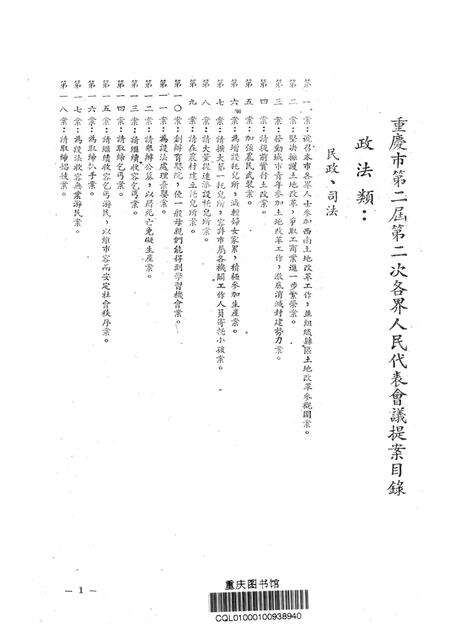 重慶市第二屆第二次各界人民代表會議提案目錄
政法類：
民政、司法
第一案：迎召本市各界人士參加西南土地改革工作，並組織縣區土地改革參觀團案。
第二案：堅決擁護土地改革，爭取工商業進一步繁榮案。
第三案：發動城市青年參加土地改革工作，澈底消滅封建勢力案。
第四案：請從前實行土改案。
第五案：加強農民武裝案。
第六案：為增設托兒所，減輕婦女家累，積極參加生產案。
第七案：請擴大第一托兒所，容許市屬各機關工作人員寄托小孩案。
第八案：請大量設達添設托兒所案。
第九案：請在農村建立托兒所案。
第一〇案：創辦育嬰院，使一般母親們能得到學習機會案。
第一一案：為設法處理棄嬰案。
第一二案：請舉辦公墓，以居死亡免礙生產案。
第一三案：請繼續收容乞丐案。
第一四案：請取締乞丐案。
第一五案：請繼續收容乞丐游民，以維市容而安定社會秩序案。
第一六案：為取締扒手案。
第一七案：為設法收容無業游民案。
第一八案：請取締娼妓案。
— 1 —
重庆图书馆
CQL01000100938940